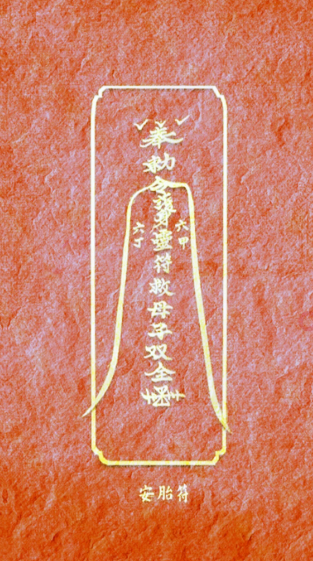 奉勅令
六甲
六丁
靈符救母子双全
安胎符